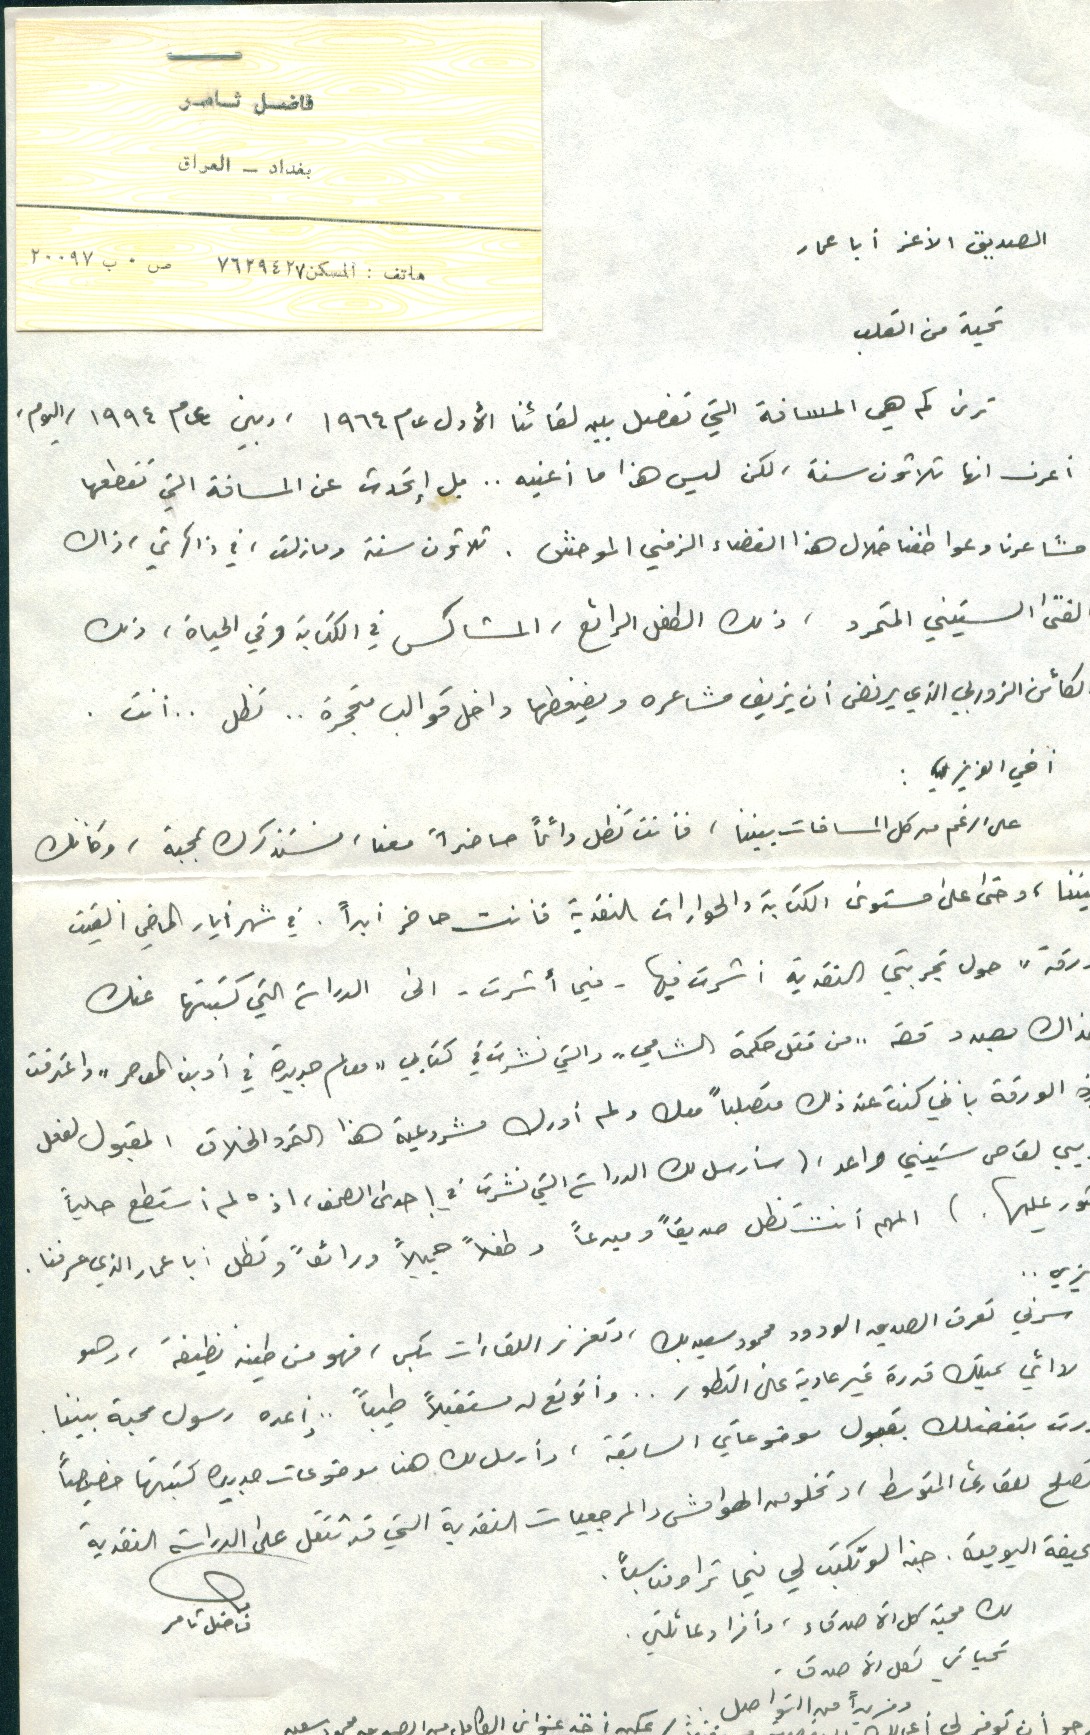 فاضل ثامر
بغداد – العراق
هاتف : المسكن ٧٦٢٩٤٢٧ ص . ب ٢٠٠٩٧
الصديق الأعز أبا عمار
تحية من القلب
ترى كم هي المسافة التي تفصل بين لقائنا الأول عام ١٩٦٤ ، وبين عام ١٩٩٤ ، اليوم ،
أعرف انها ثلاثون سنة ، لكن ليس هذا ما أعنيه .. بل إتحدث عن المسافة التي تقطعها
مشاعرنا وعواطفنا خلال هذا الفضاء الزمني الموحش . ثلاثون سنة ومازلت ، في ذاكرتي ، ذاك
الفتى الستيني المتمرد ، ذلك الطفل الرائع ، المشاكس في الكتابة وفي الحياة ، ذلك
لكائن الزوربي الذي يرفض أن يزيف مشاعره ويضغطها داخل قوالب متحجرة .. تظل .. أنت .
أخي العزيز :
على الرغم من كل المسافات بيننا ، فأنت تظل دائماً حاضراً معنا ، نستذكرك بمحبة ، وكأنك
بيننا ، وحتى على مستوى الكتابة والحوارات النقدية فأنت حاضر أبداً . في شهر أيار الماضي ألقيت
ورقة " حول تجربتي النقدية أشرت فيها - فيما أشرت - الى الدراسة التي كتبتها عنك
نذاك بصدد قصة " من قتل حكمة الشامي " والتي نشرت في كتابي " معالم جديدة في أدبنا المعاصر " واعترفت
الورقة بأنني كنت عند ذلك متصلباً معك ولم أدرك مشروعية هذا التمرد الخلاق المقبول لفعل
لقاص ستيني واعد ، ( سأرسل لك الدراسة التي نشرت في إحدى الصحف ، اذ لم أستطع حالياً
ثور عليها . ) المهم أنت تظل صديقاً ومبدعاً وطفلاً جميلاً ورائعاً وتظل أبا عمار الذي عرفنا .
يزي ..
سرني تعرف الصديق الودود محمود سعيد بك ، وتعزز اللقاءات بكم ، فهو من طينة نظيفة ، وهو
لاائي يمتلك قدرة غير عادية على التطور .. وأتوقع له مستقبلاً طيباً .. إعده رسول محبة بيننا .
ررت بتفضلك بقبول موضوعاتي السابقة ، وأرسل لك هنا موضوعات جديدة كتبتها خصيصاً
تصلح للقارئ المتوسط ، وتخلو من الهوامش والمرجعيات النقدية التي قد تثقل على الدراسة النقدية
حيفة اليومية . حبذا لو تكتب لي فيما تراه مناسباً .
لك محبة كل الأصدقاء ، وأفراد عائلتي .
تحياتي لكل الأصدقاء .
ومزيداً من التواصل
فاضل ثامر